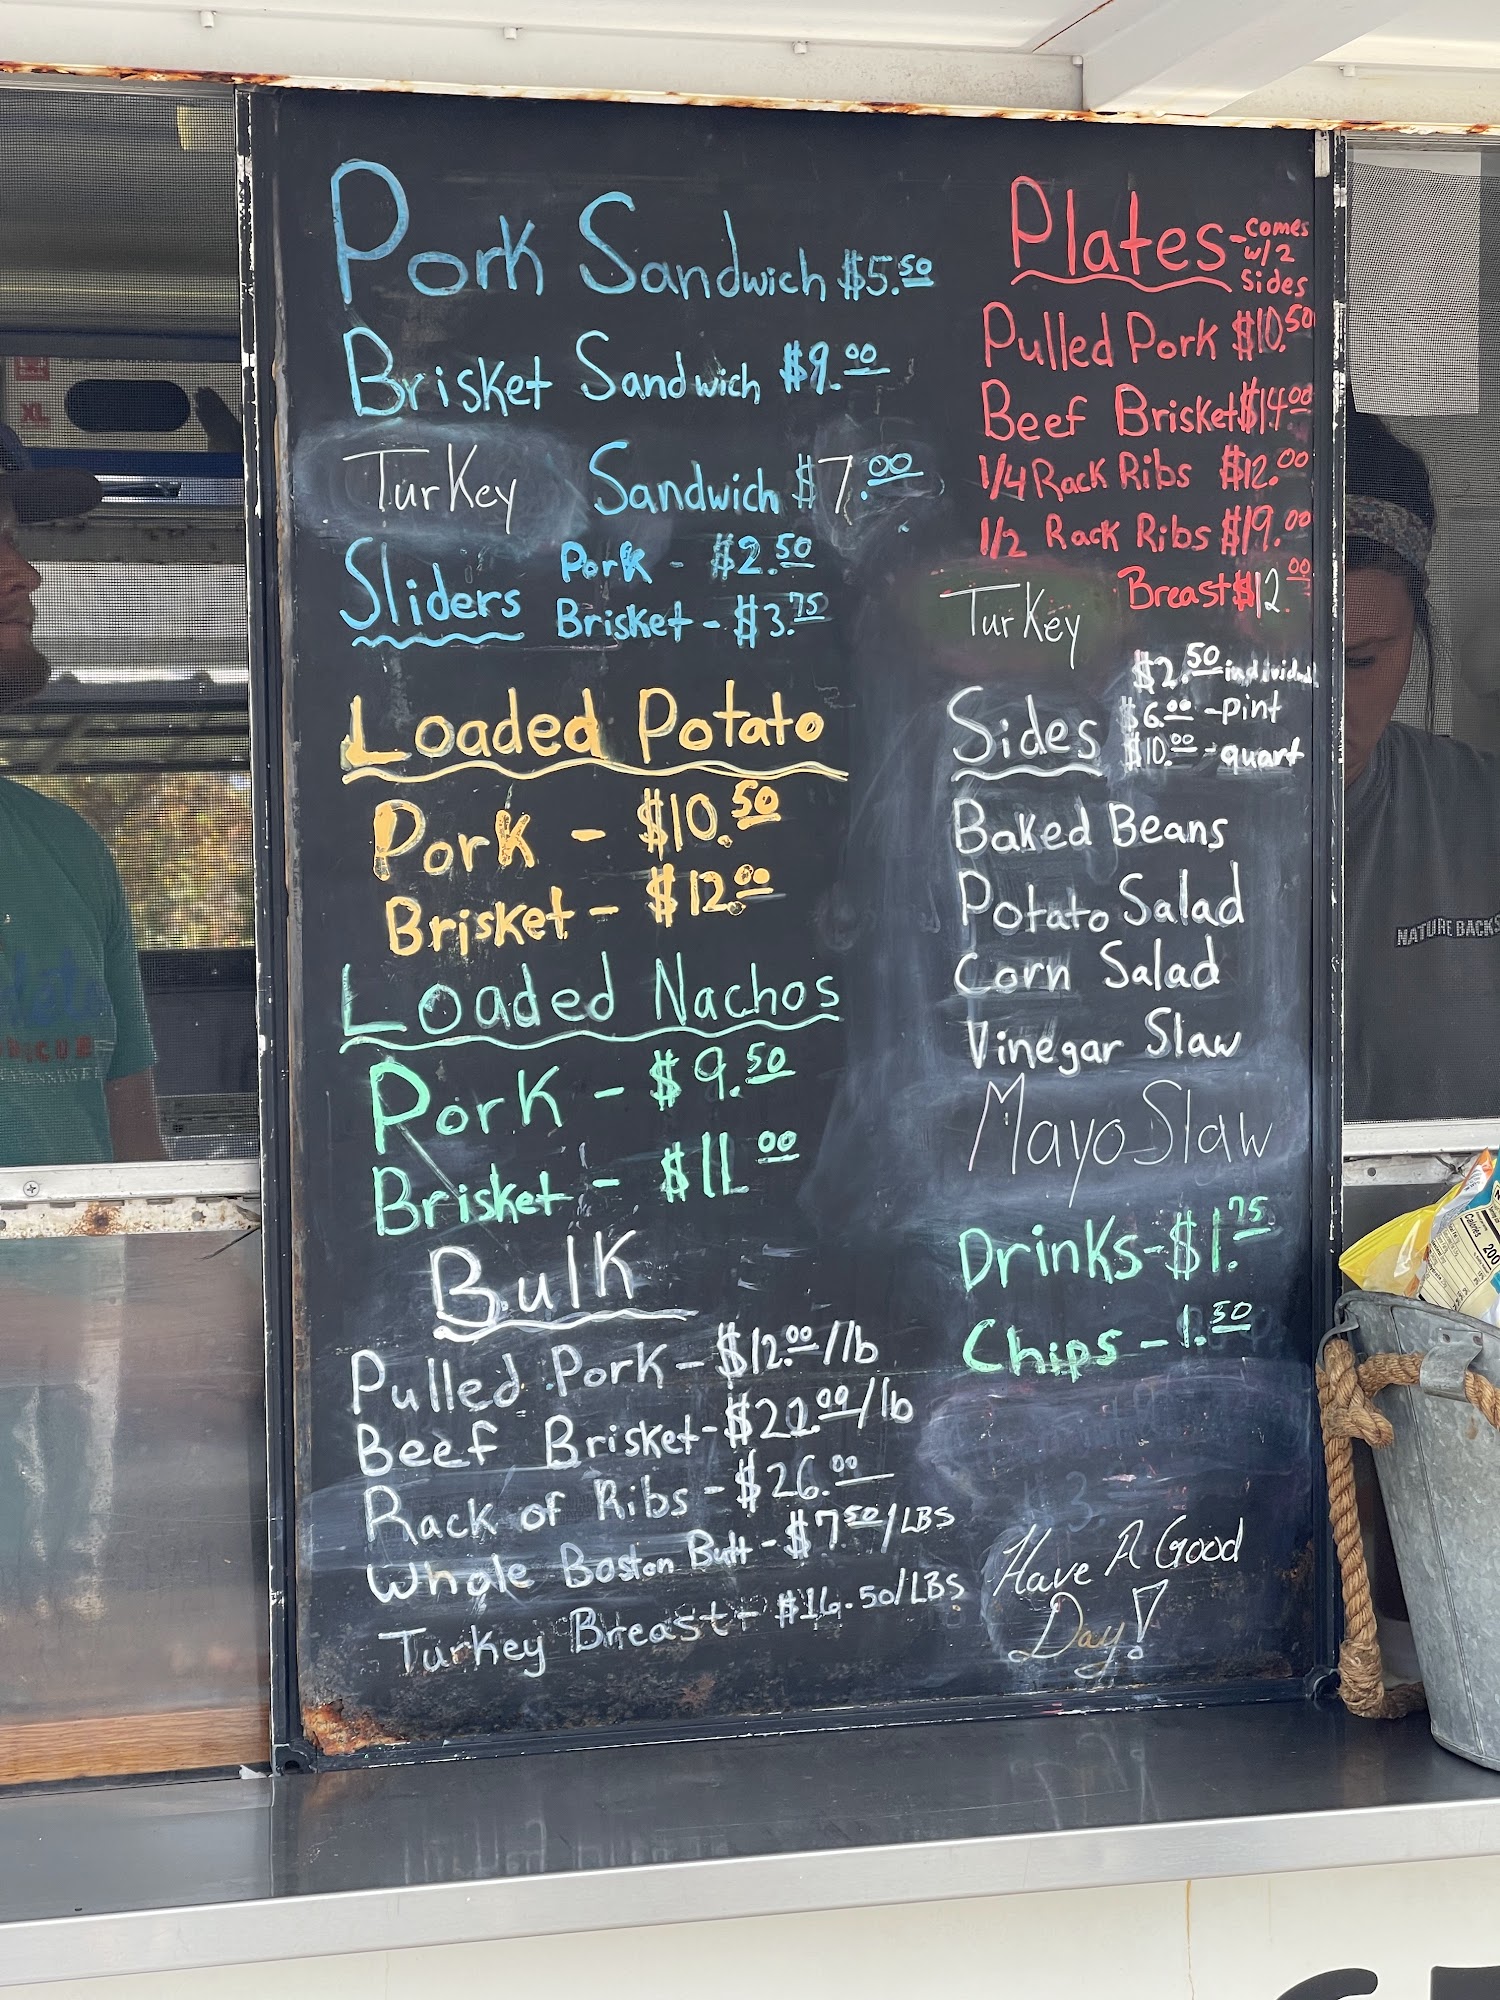 Pork Sandwich $5.50
Brisket Sandwich $9.00
Turkey Sandwich $7.00
Sliders Pork - $2.50
Brisket - $3.75
Loaded Potato
Pork - $10.50
Brisket - $12.00
Loaded Nachos
Pork - $9.50
Brisket - $11.00
Bulk
Pulled Pork - $12.00/lb
Beef Brisket - $22.00/lb
Rack of Ribs - $26.00
Whole Boston Butt - $7.50/LBS
Turkey Breast - $16.50/LBS
Plates - comes
w/2
sides
Pulled Pork $10.50
Beef Brisket $14.00
1/4 Rack Ribs $12.00
1/2 Rack Ribs $19.00
Turkey Breast $12.00
Sides $2.50 individual
$6.00 - pint
$10.00 - quart
Baked Beans
Potato Salad
Corn Salad
Vinegar Slaw
Mayo Slaw
Drinks - $1.75
Chips - 1.50
Have A Good
Day!
XL
NATURE BACKS
Calories 200